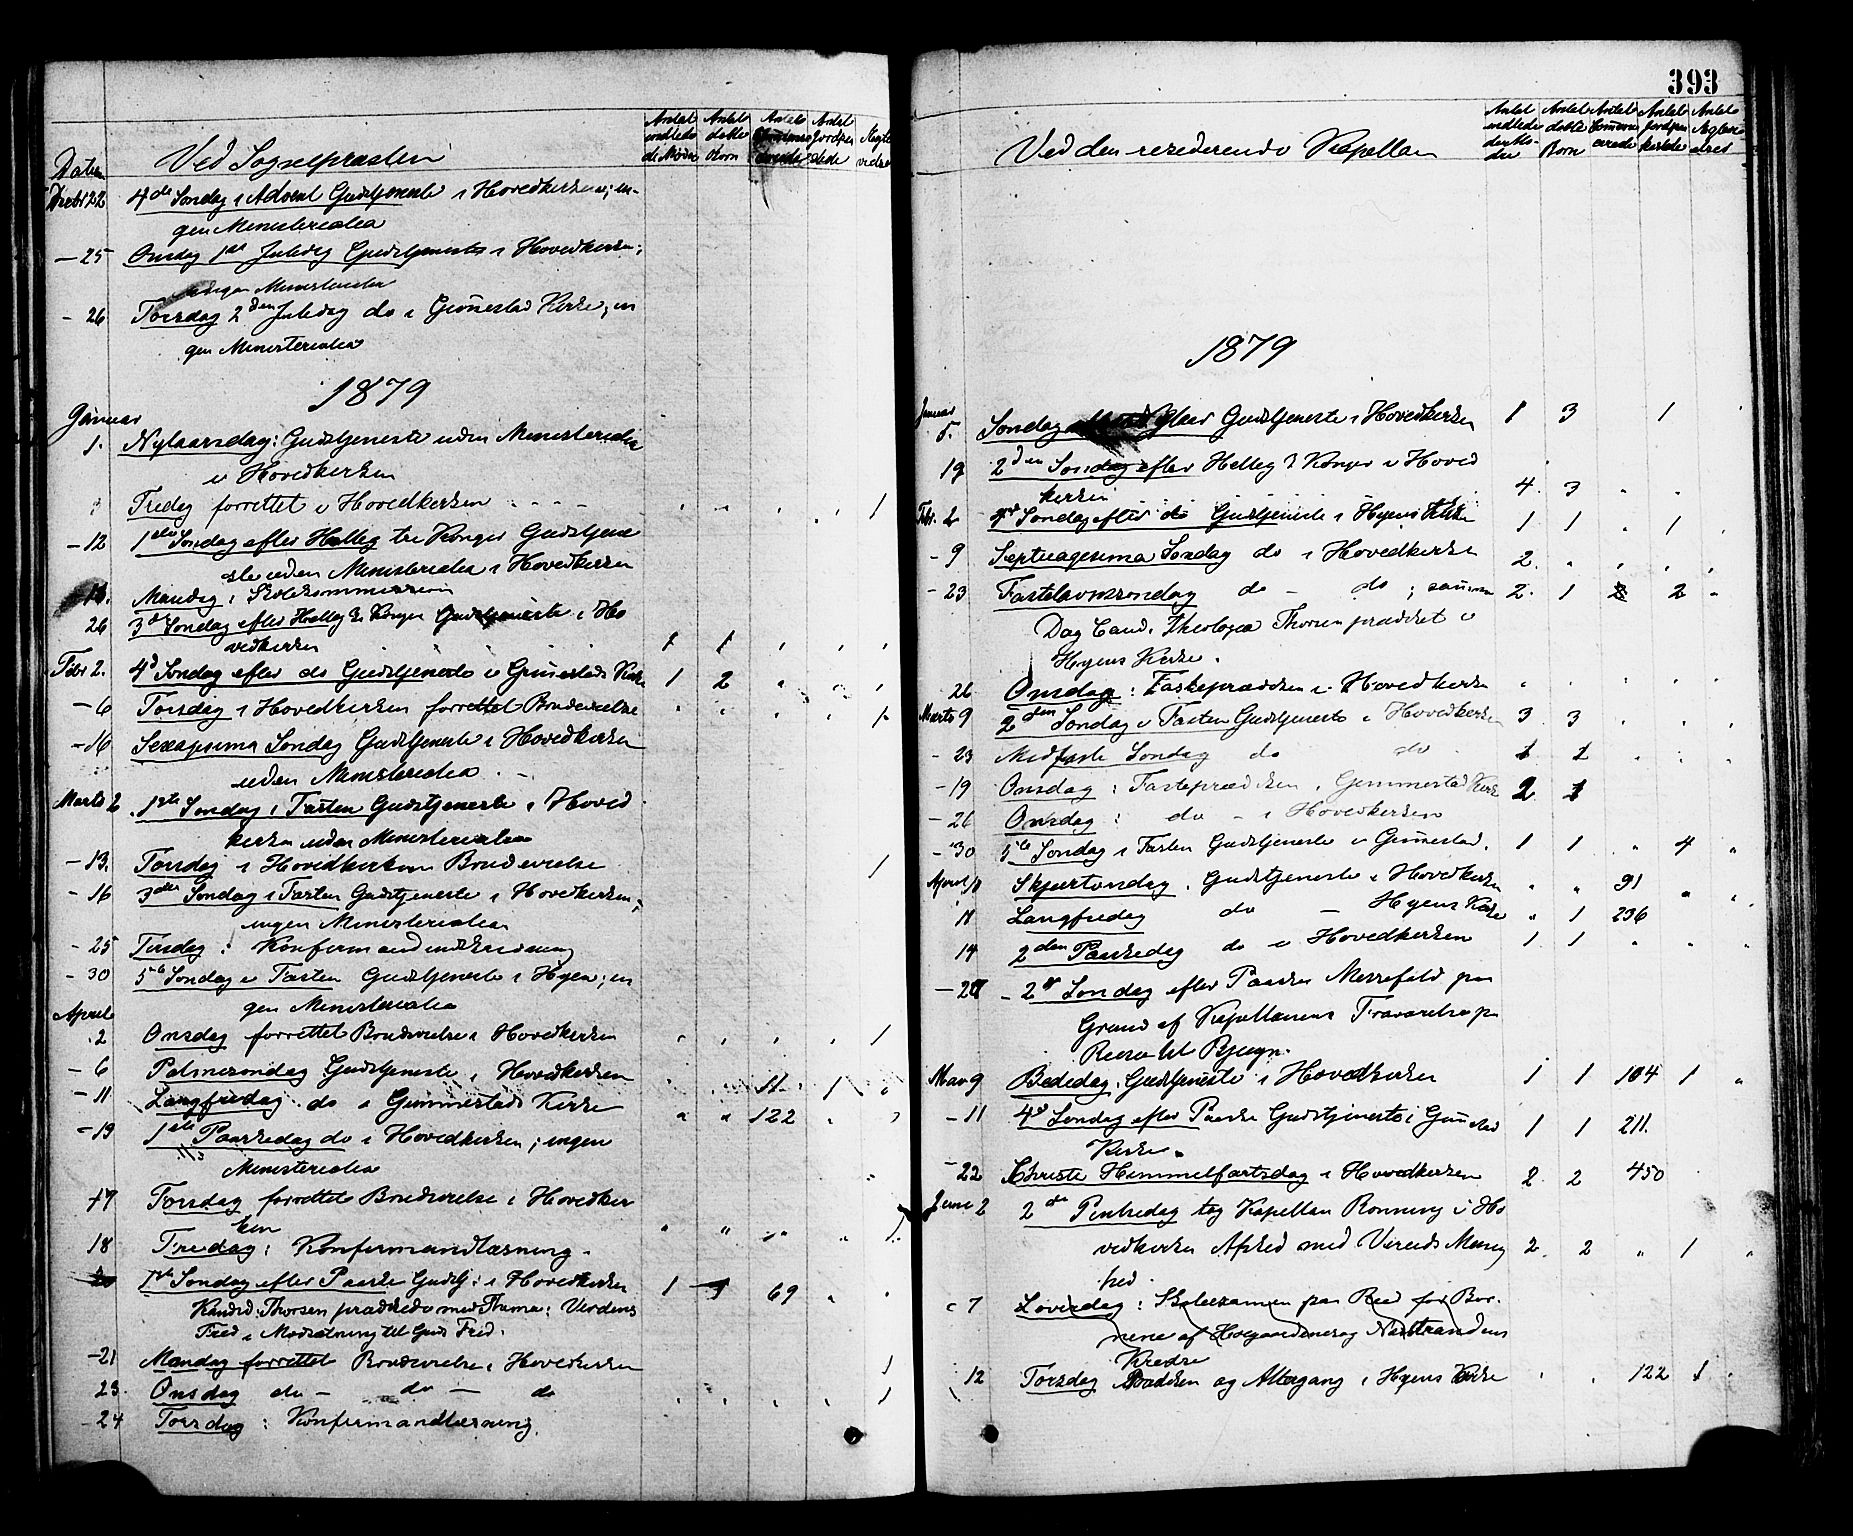 Datum
Ved Sognepræsten
Antal indledede Mødre
Antal døbte Børn
Antal
Antal
Decbr 22 4de Søndag i Advent Gudstjeneste i Hovedkirken; in-
gen Ministerialia
- 25 Onsdag 1ste Juledag Gudstjeneste i Hovedkirken;
ingen Ministerialia
- 26 Torsdag 2den Juledag do i Gimmestad Kirke; in
gen Ministerialia
1879
Januar
1. Nytaarsdag: Gudstjeneste uden Ministerialia
i Hovedkirken
Fredag forrettet i Hovedkirken - - - 1
- 12 1ste Søndag efter Hellig tre Konger Gudstjene
ste uden Ministerialia i Hovedkirken
13. Mandag: Skolekommission
26 3die Søndag efter Hellig 3 Konger Gudstjeneste i Ho
vedkirken 1 1
Febr 2. 4d Søndag efter do Gudstjeneste i Gimmestads Kirke 1 2
- 6 Torsdag i Hovedkirken forrettet Brudevielse 1
- 16 Sexagesima Søndag Gudstjeneste i Hovedkirken
uden Ministerialia. -
Marts 2 1ste Søndag i Fasten Gudstjeneste i Hoved
kirken uden Ministerialia
- 13. Torsdag i Hovedkirken Brudevielse 1
- 16 3die Søndag i Fasten Gudstjeneste i Hovedkirken;
ingen Ministerialia
- 25 Tirsdag: Konfirmandindskrivning
- 30 5te Søndag i Fasten Gudstjeneste i Hyen; in
gen Ministerialia
April
2 Onsdag forrettet Brudevielse i Hovedkirken 1
- 6 Palmesøndag Gudstjeneste i Hovedkirken 11 1
- 11 Langfredag do i Gimmestads Kirke 122
- 13 1ste Paaskedag do i Hovedkirken; ingen
Ministerialia
17 Torsdag forrettet Brudevielse i Hovedkir
ken 1.
18 Fredag: Konfirmandlæsning -
20 1ste Søndag efter Paaske Gudstj: i Hovedkirken 1 1 69
Kandid: Thorsen prædikede med Thema: Verdens
Fred i Modsætning til Guds Fred.
- 21 Mandag forrettet Brudevielse i Hovedkirken 1
23. Onsdag do - do - do 1
- 24 Torsdag: Konfirmandlæsning.
393
Ved den residerende Kapellan
Antal
Antal døbte Børn
Antal
Antal
Antal
1879
Januar
5. Søndag Gudstjeneste i Hovedkirken 1 3 1
19 2den Søndag efter Hellig 3 Konger i Hoved
kirken 4. 3
Febr. 2 Søndag efter do Gudstjeneste i Hyens Kirke 1 1 1
- 9 Septuagesima Søndag do i Hovedkirken 2.
- 23 Fastelavnssøndag do - do; samme 2. 1 2
Dag Cand. Theologia Thorsen prædiket i
Hyens Kirke.
26 Onsdag: Fasteprædiken i Hovedkirken
Marts 9 2den Søndag i Fasten Gudstjeneste i Hovedkirken 3 3
- 23 Midfaste Søndag do do 1 1
- 19 Onsdag: Fasteprædiken i Gimmestad Kirke 2 1
- 26 Onsdag: do - i Hovedkirken
- 30 5te Søndag i Fasten Gudstjeneste i Gimmestad. 1 1 4
April Skjærtorsdag. Gudstjeneste i Hovedkirken 91
11 Langfredag do - Hyens Kirke 1 236
14 2den Paaskedag do i Hovedkirken 1 1
- 27 - 2den Søndag efter Paaske Messefald paa
Grund af Kapellanens Fraværelse paa
Reise til Bjugn.
Mai 9 Bededag. Gudstjeneste i Hovedkirken 1 1 104 1
- 11 4de Søndag efter Paaske Gudstjeneste i Gimmestad 1 1 211.
Kirke.
- 22 Christi Himmelfartsdag i Hovedkirken 2. 2 450
Juni 2 2den Pintsedag tog Kapellan Rønning i Ho
vedkirken Afsked med Vereids Menig 2. 2 1
hed.
7 Løverdag: Skoleexamen paa Reed for Bør-
nene af Hoegaardenes og Nordstrandens
Kredse
12 Torsdag Prædiken og Altergang i Hyens Kirke 122 1